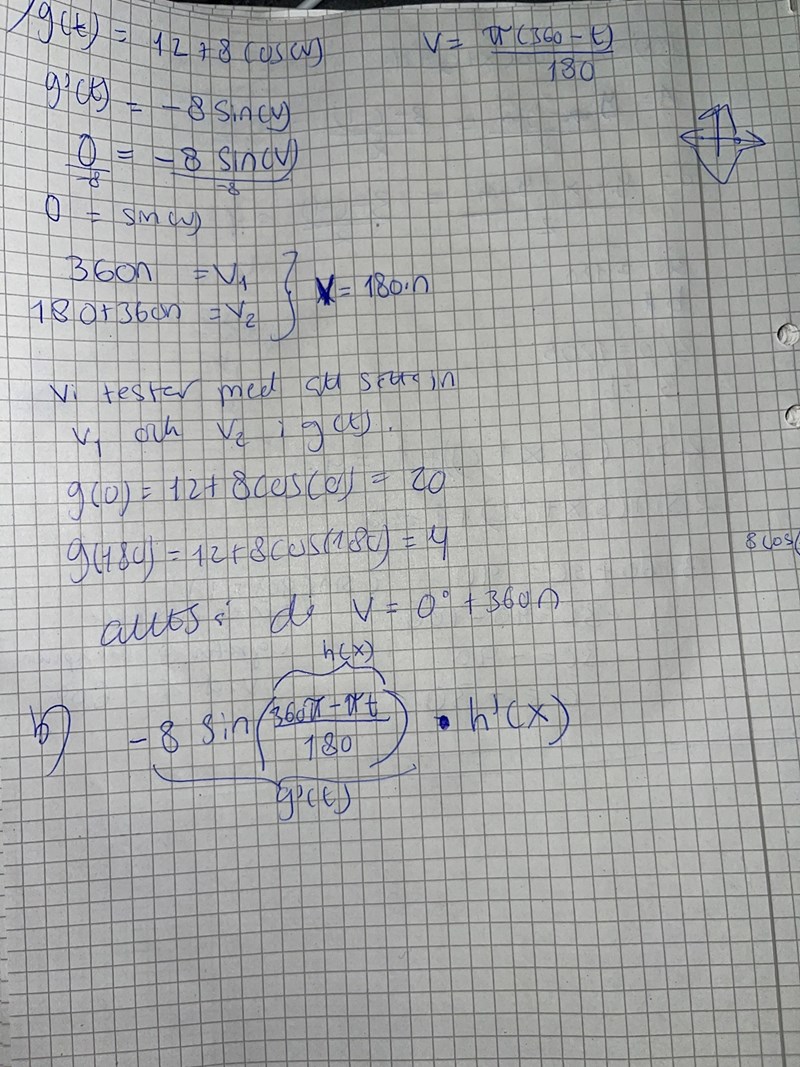 g(t) = 12 + 8 cos(v) v = π(360 - t) / 180
g'(t) = -8 sin(v)
0/-8 = -8 sin(v)/-8
0 = sin(v)
360n = v₁
180+360n = v₂ } v = 180·n
Vi testar med att sätta in
v₁ och v₂ i g(t).
g(0) = 12 + 8cos(0) = 20
g(180) = 12+8cos(180) = 4
8cos(
alltså: då v = 0° + 360n
h(x)
b) -8 sin(360π-πt / 180) · h'(x)
g'(t)